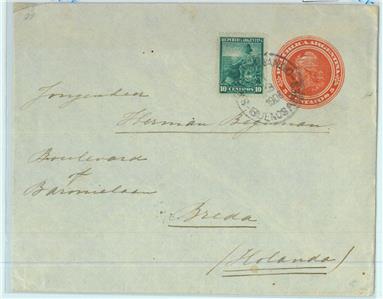 REPUBLICA ARGENTINA
10 CENTAVOS 10
REPUBLICA ARGENTINA
CENTAVOS
BUENOS AIRES
Jongenheer
Herman
Boulevard
of
Baronielaan
Breda
(Holanda)